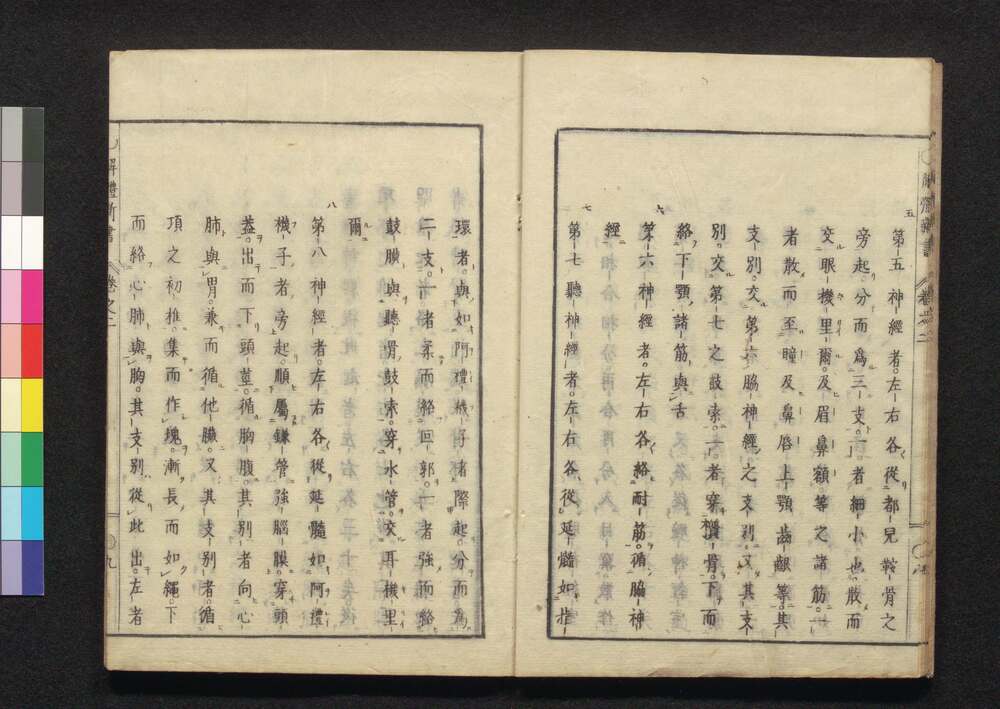 五
第五神經者。左右各從都兒鞍骨之
旁起。分而爲三支。一者細小也。散而
交眼機里爾。及眉鼻額等之諸筋。一
者散而至瞳及鼻唇上顎齒齦等。其
支別。交第六脇神經之支別。又其支
別。交第七之鼓索。一者穿櫕骨。下而
絡下顎諸筋與舌
六
第六神經者。左右各絡耐筋。循脇神
經
七
第七聽神經者。左右各從延髓如指
環者。與如阿禮機子者際起。分而爲
二支。一者柔而絡回郭。一者強而絡
鼓膜與聽骨鼓索。穿水管。交耳機里
爾
八
第八神經者。左右各從延髓如阿禮
機子者旁起。順屬鎌管強腦膜。穿頭
蓋。出而下頭莖。循胸腹。其別者向心
肺與胃。兼而循他臟。又其支別者循
項之初椎。集而作塊。漸長而如繩。下
而絡心肺與胸。其支別。從此出。左者
解體新書
卷之二
九